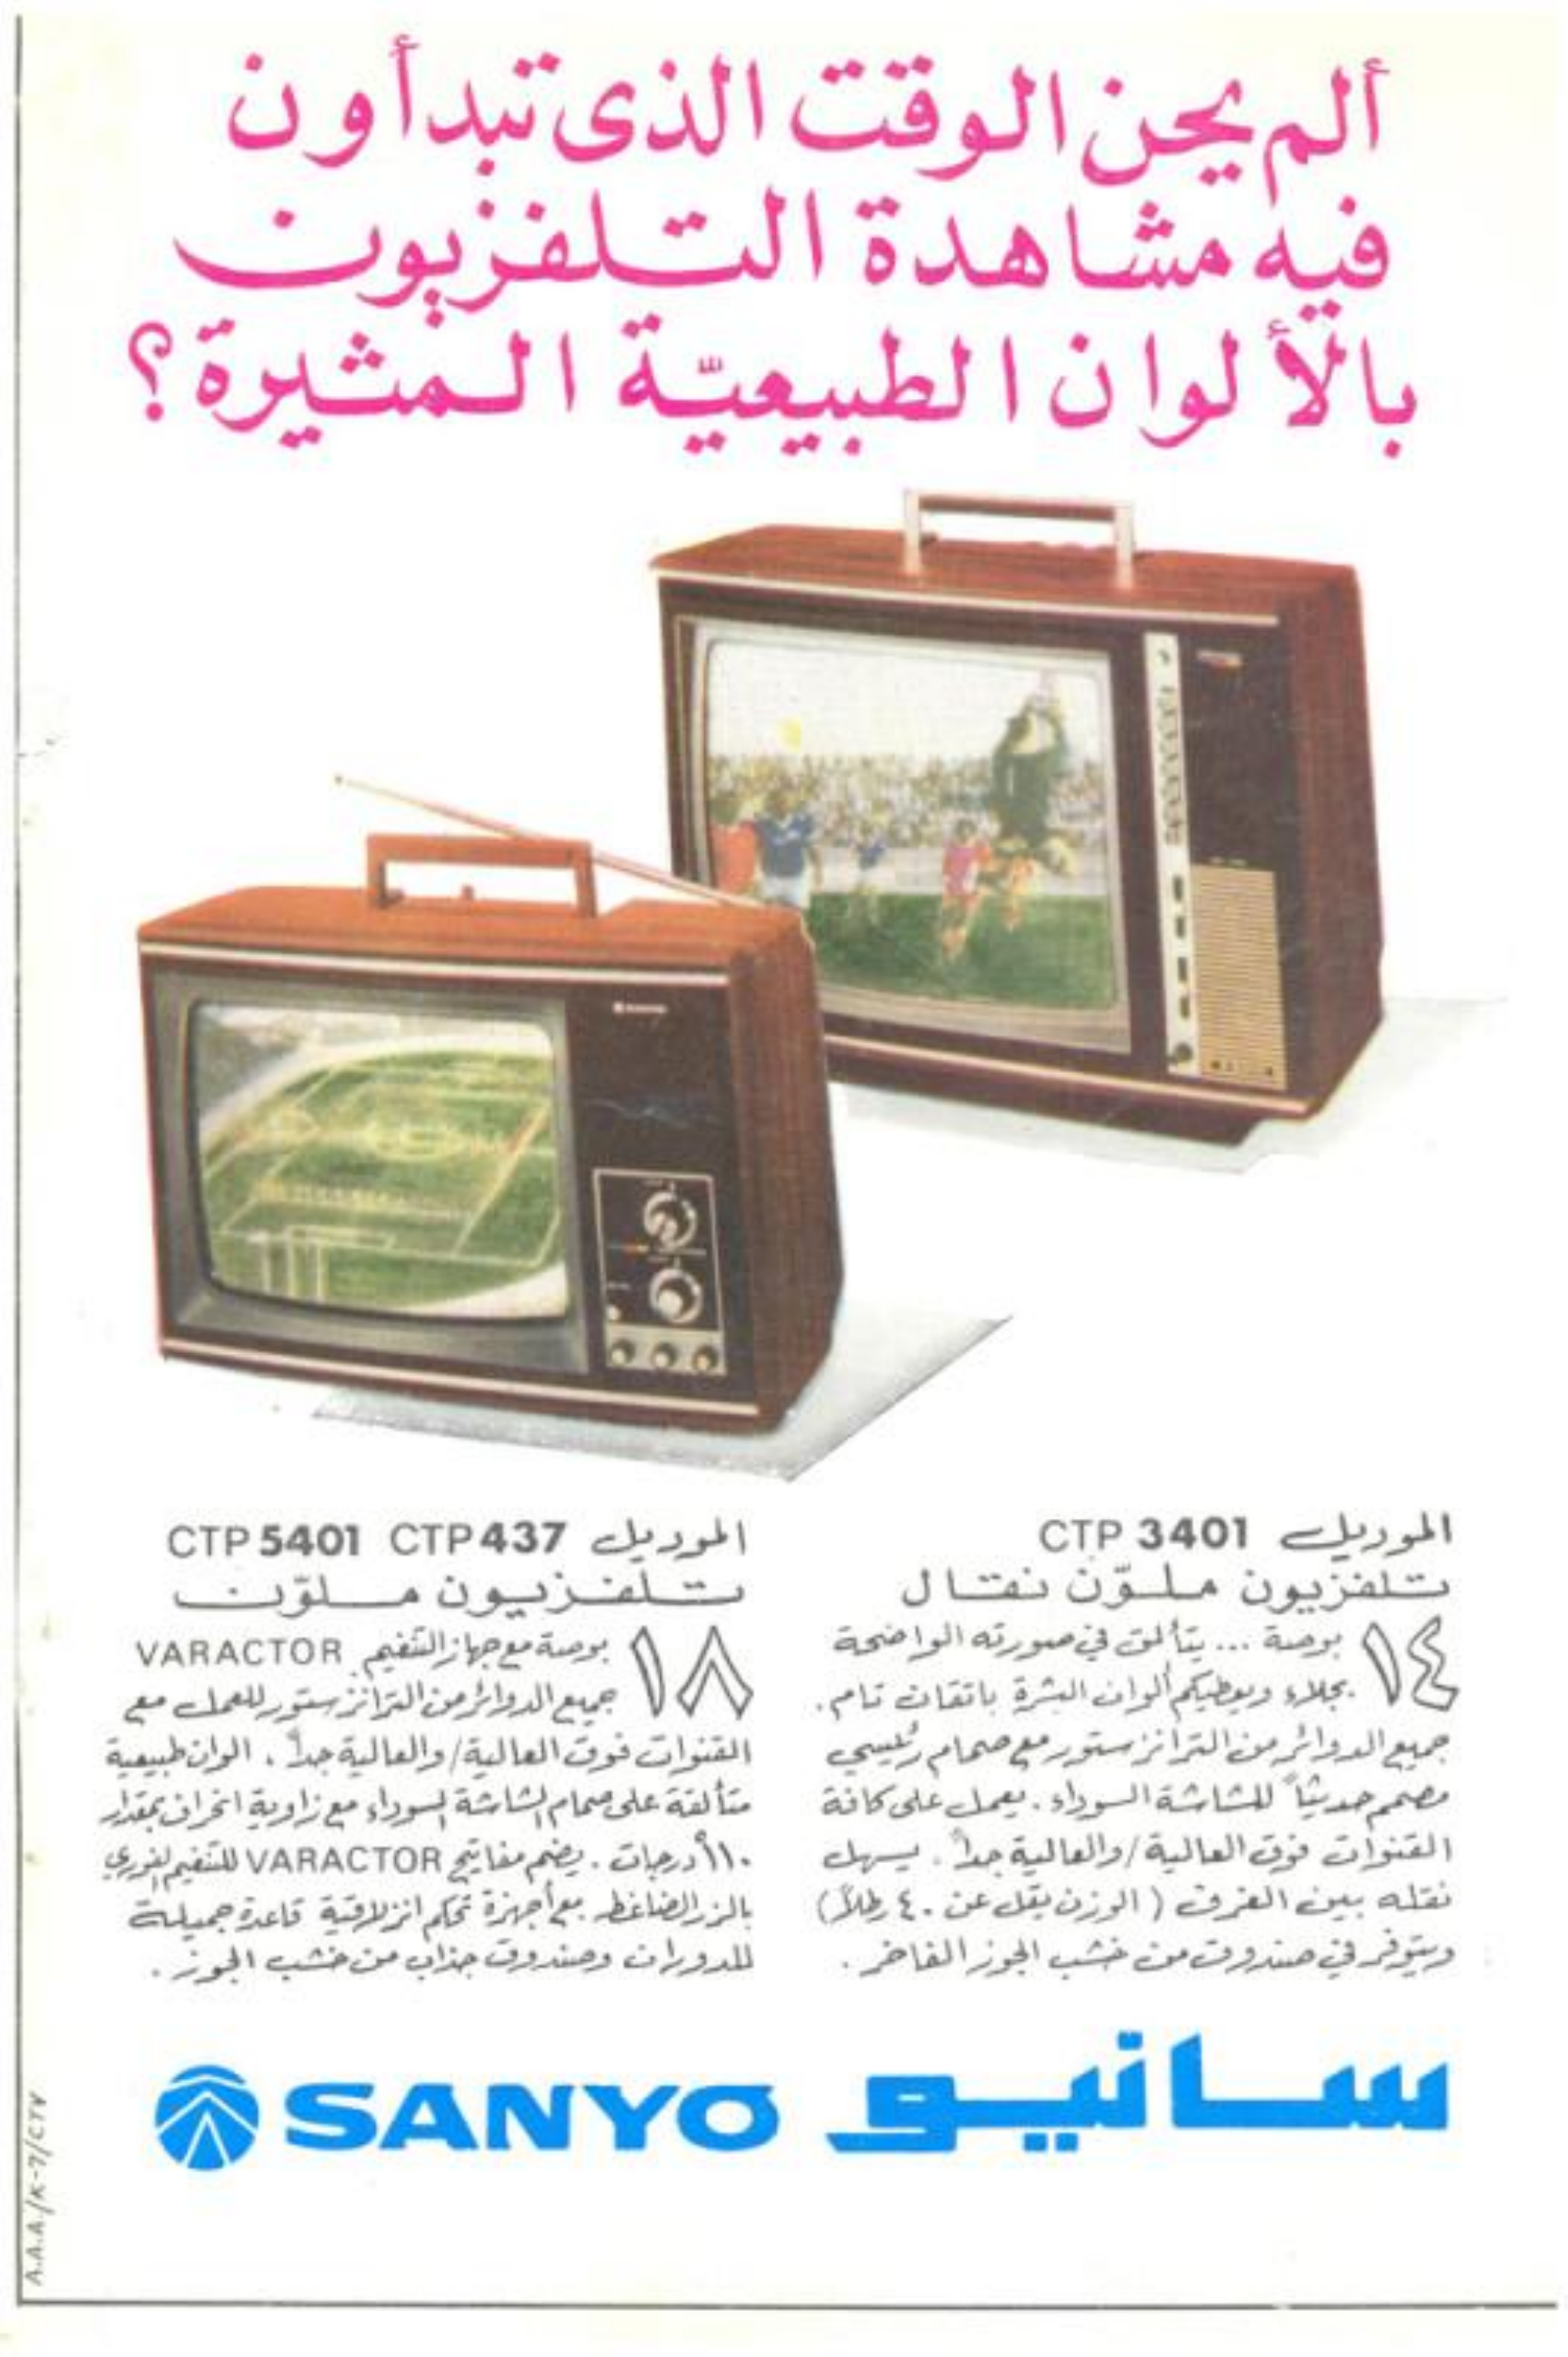 ألم يحن الوقت الذى تبدأون
فيه مشاهدة التلفزيون
بالألوان الطبيعيّة المثيرة؟
SANYO
الموديل CTP 3401
تلفزيون ملوّن نقال
١٤ بوصة ... يتألق في صورته الواضحة
بجلاء ويعطيكم ألوان البشرة باتقان تام.
جميع الدوائر من الترانزستور مع صمام رئيسي
مصمم حديثاً للشاشة السوداء. يعمل على كافة
القنوات فوق العالية/والعالية جداً. يسهل
نقله بين الغرف (الوزن يقل عن ٤٠ رطلاً)
ويتوفر في صندوق من خشب الجوز الفاخر.
الموديل CTP 437 CTP 5401
تلفزيون ملوّن
١٨ بوصة مع جهاز التنغيم VARACTOR
جميع الدوائر من الترانزستور للعمل مع
القنوات فوق العالية/والعالية جداً. الوان طبيعية
متألقة على صمام الشاشة السوداء مع زاوية انحراف بمقدار
١١٠ درجات. يضم مفاتيح VARACTOR للتنغيم الفوري
بالزر الضاغط. مع أجهزة تحكم انزلاقية قاعدة جميلة
للدوران وصندوق جذاب من خشب الجوز.
سانيو SANYO
A.A.A./K-7/CTV